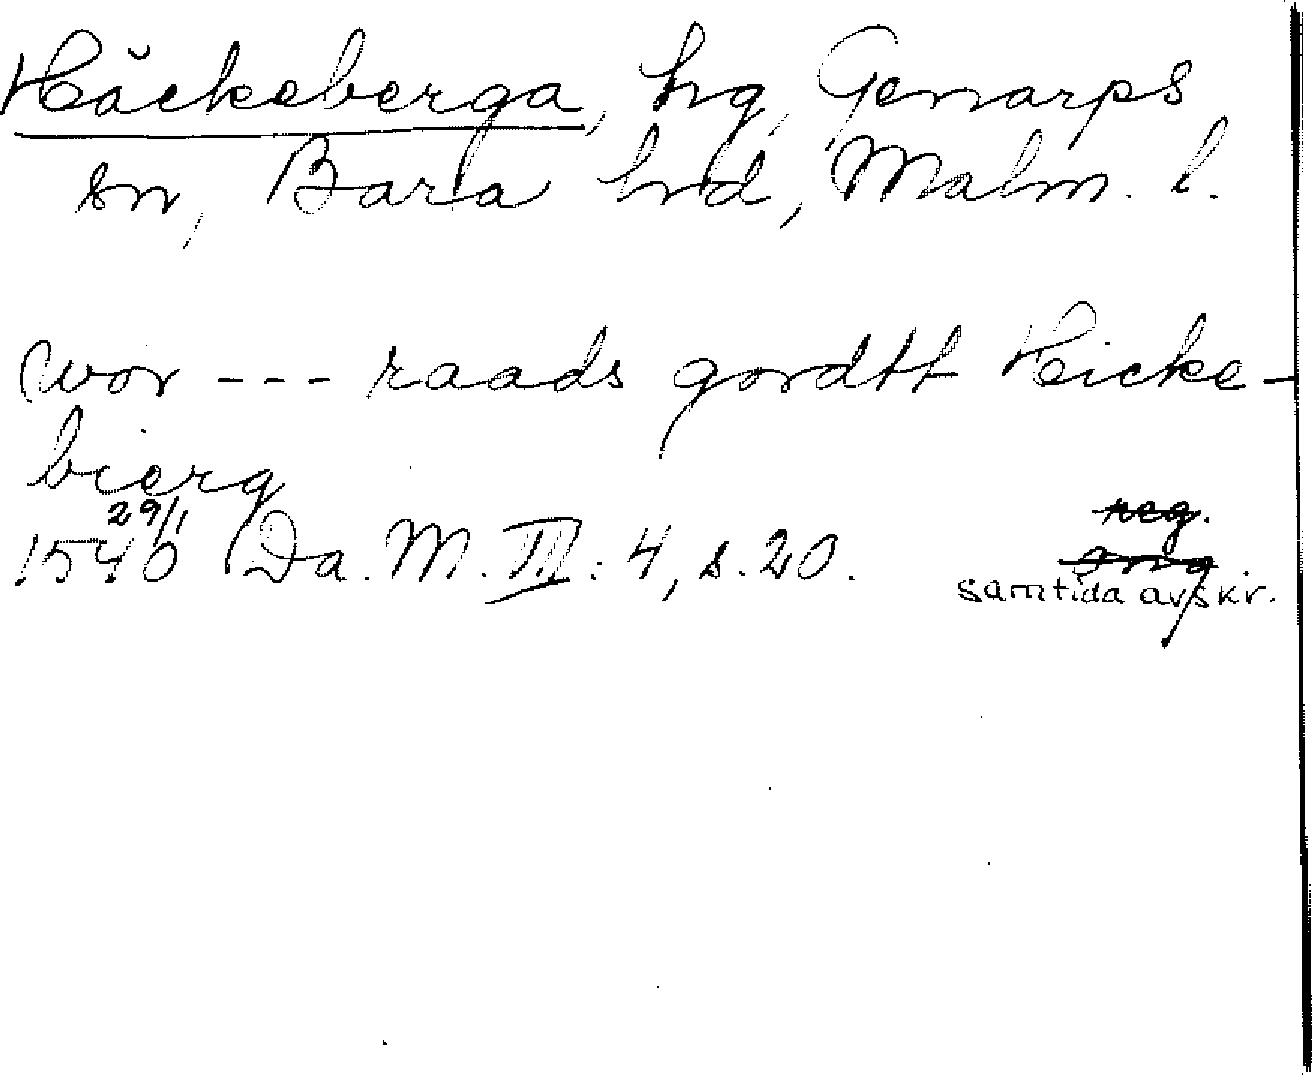 Häckeberga, hg, Genarps
sn, Bara hd, Malm. l.
wor --- raads gordtt Heicke-
bierg
29/1
1540 Da. M. III: 4, s. 20.
reg.
samtida avskr.